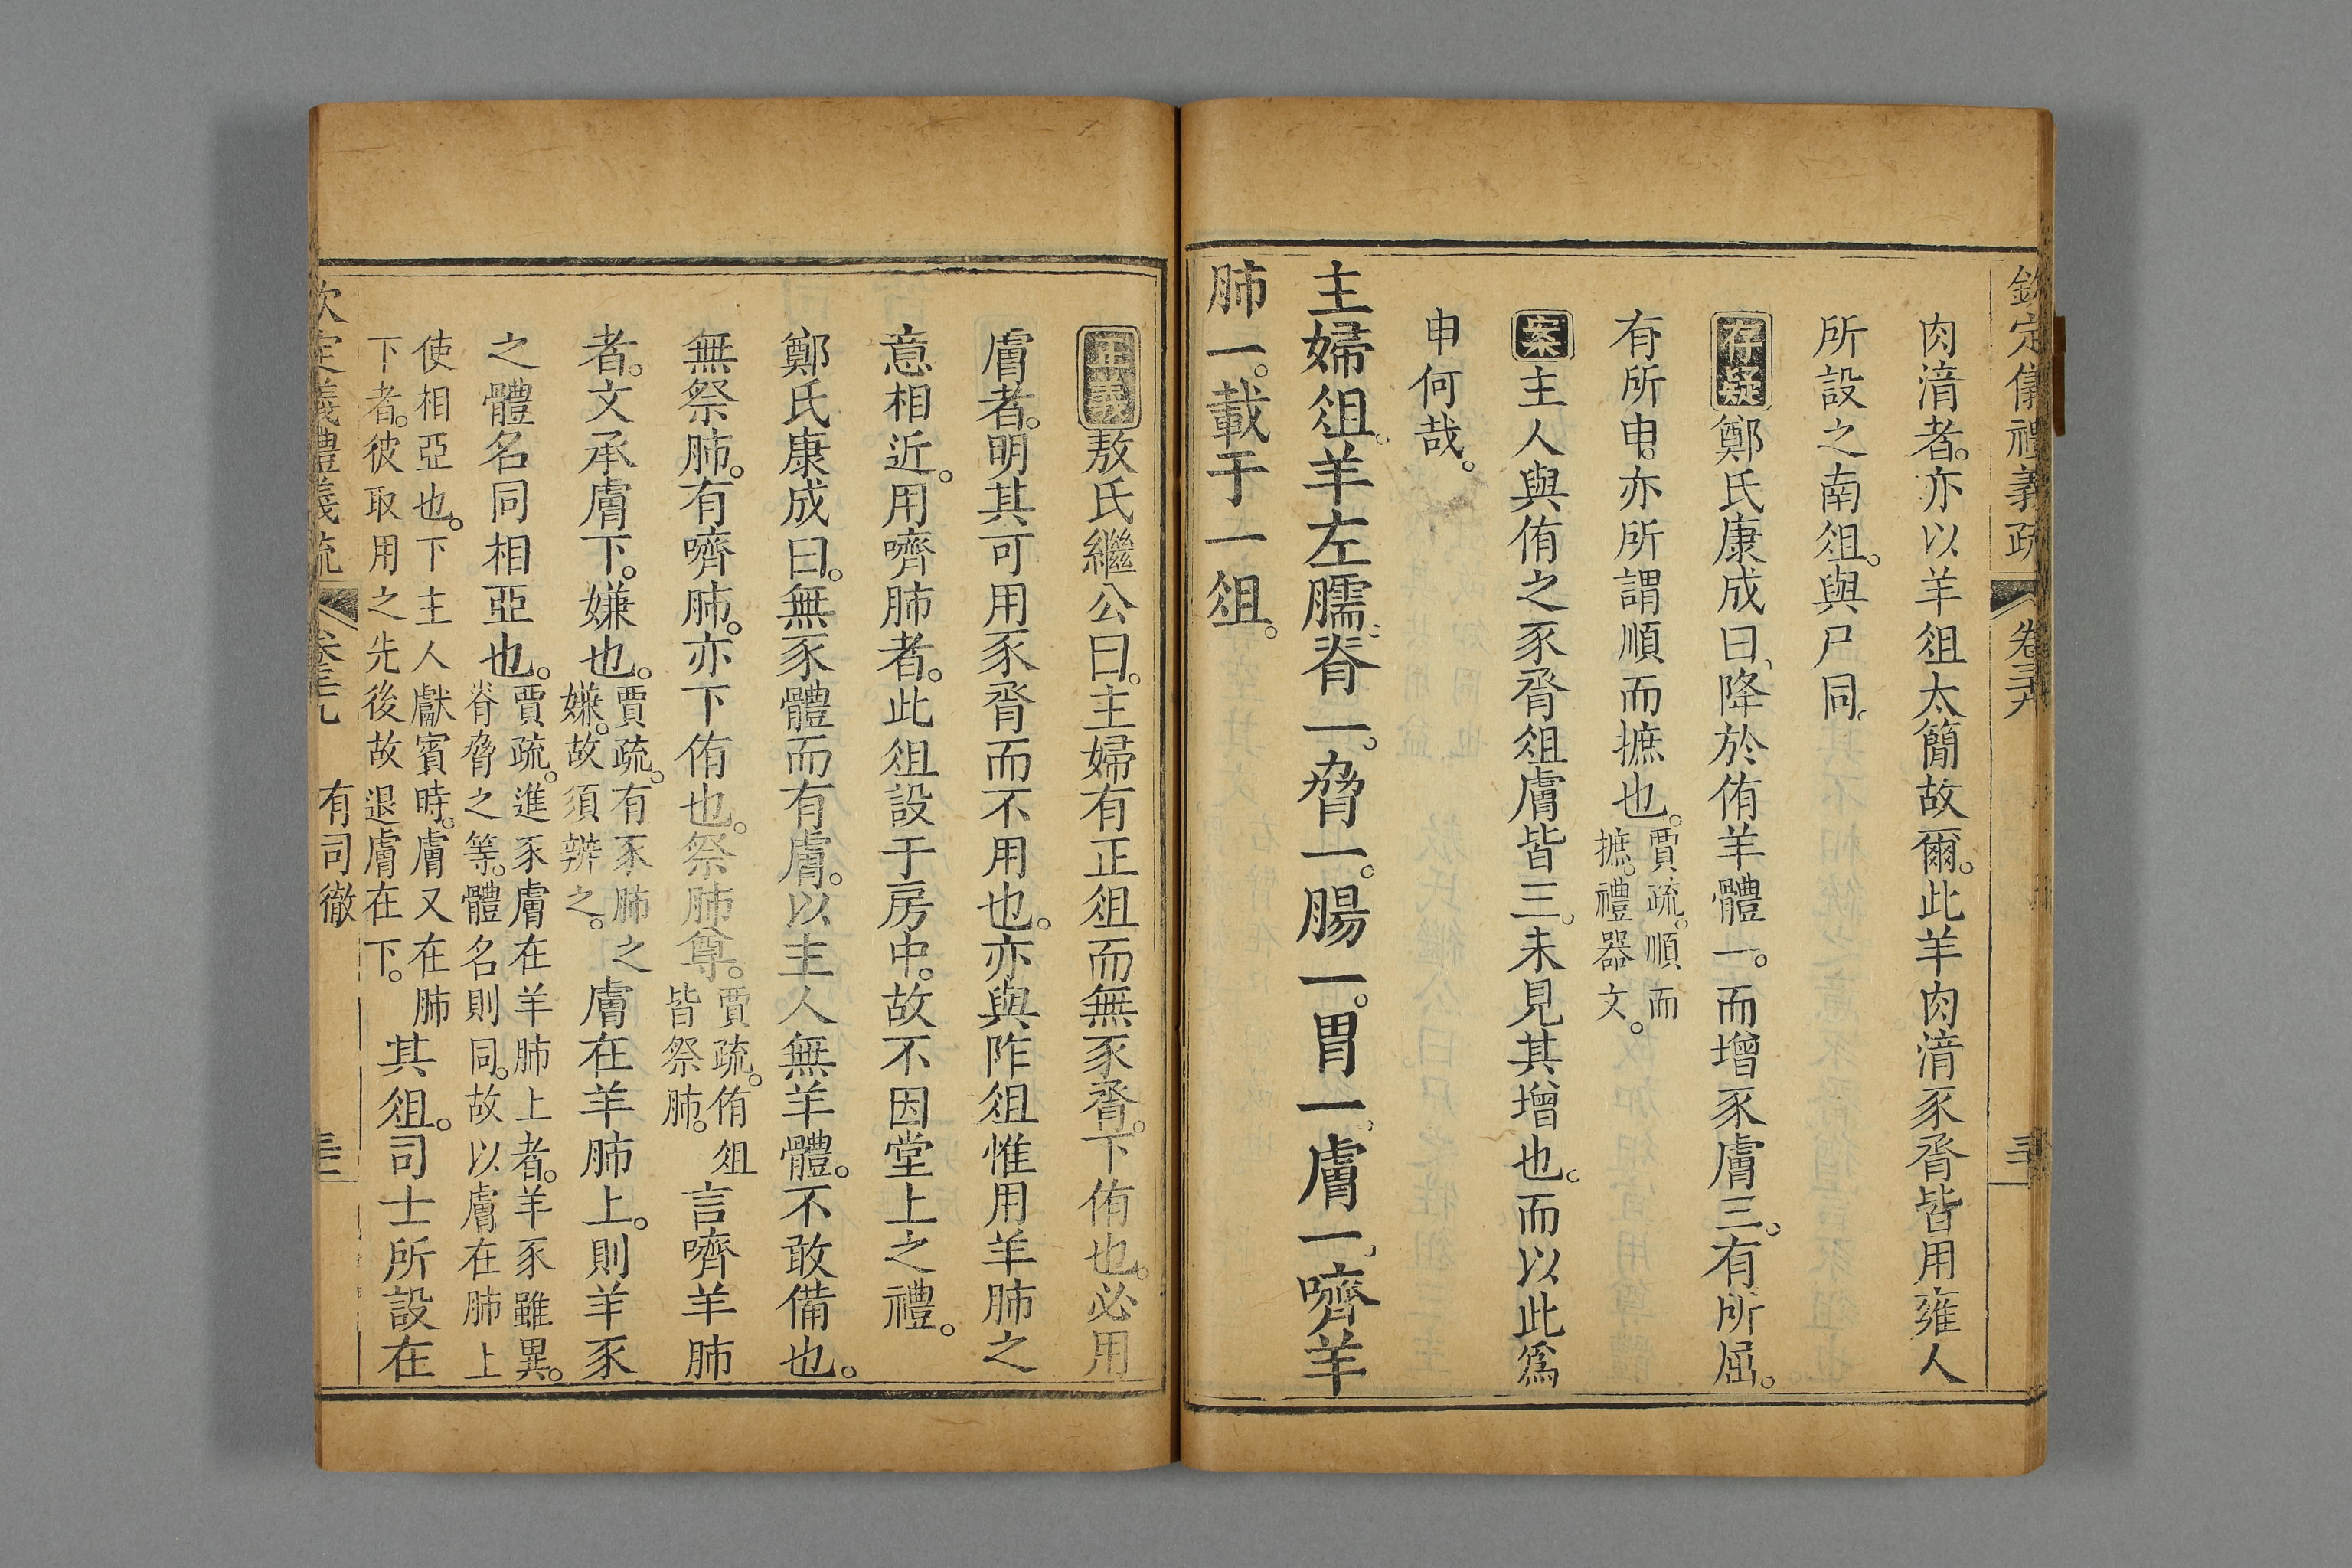 欽定儀禮義疏 卷三十九
肉湇者。亦以羊俎太簡故爾。此羊肉湇豕脀皆用雍人
所設之南俎。與尸同。
存疑 鄭氏康成曰、降於侑羊體一。而增豕膚三。有所屈。
有所申。亦所謂順而摭也。賈疏。順而摭。禮器文。
案 主人與侑之豕脀俎膚皆三。未見其增也。而以此爲
申何哉。
主婦俎。羊左臑。脊一。脅一。腸一。胃一。膚一。嚌羊
肺一。載于一俎。
正義 敖氏繼公曰。主婦有正俎而無豕脀。下侑也。必用
膚者。明其可用豕脀而不用也。亦與阼俎惟用羊肺之
意相近。用嚌肺者。此俎設于房中。故不因堂上之禮。
鄭氏康成曰。無豕體而有膚。以主人無羊體。不敢備也。
無祭肺。有嚌肺。亦下侑也。祭肺尊。賈疏。侑俎皆祭肺。言嚌羊肺
者。文承膚下。嫌也。賈疏。有豕肺之嫌。故須辨之。膚在羊肺上。則羊豕
之體名同相亞也。賈疏。進豕膚在羊肺上者。羊豕雖異。脊脅之等。體名則同。故以膚在肺上
使相亞也。下主人獻賓時。膚又在肺下者。彼取用之先後故退膚在下。其俎。司士所設在
欽定儀禮義疏 卷三十九 有司徹